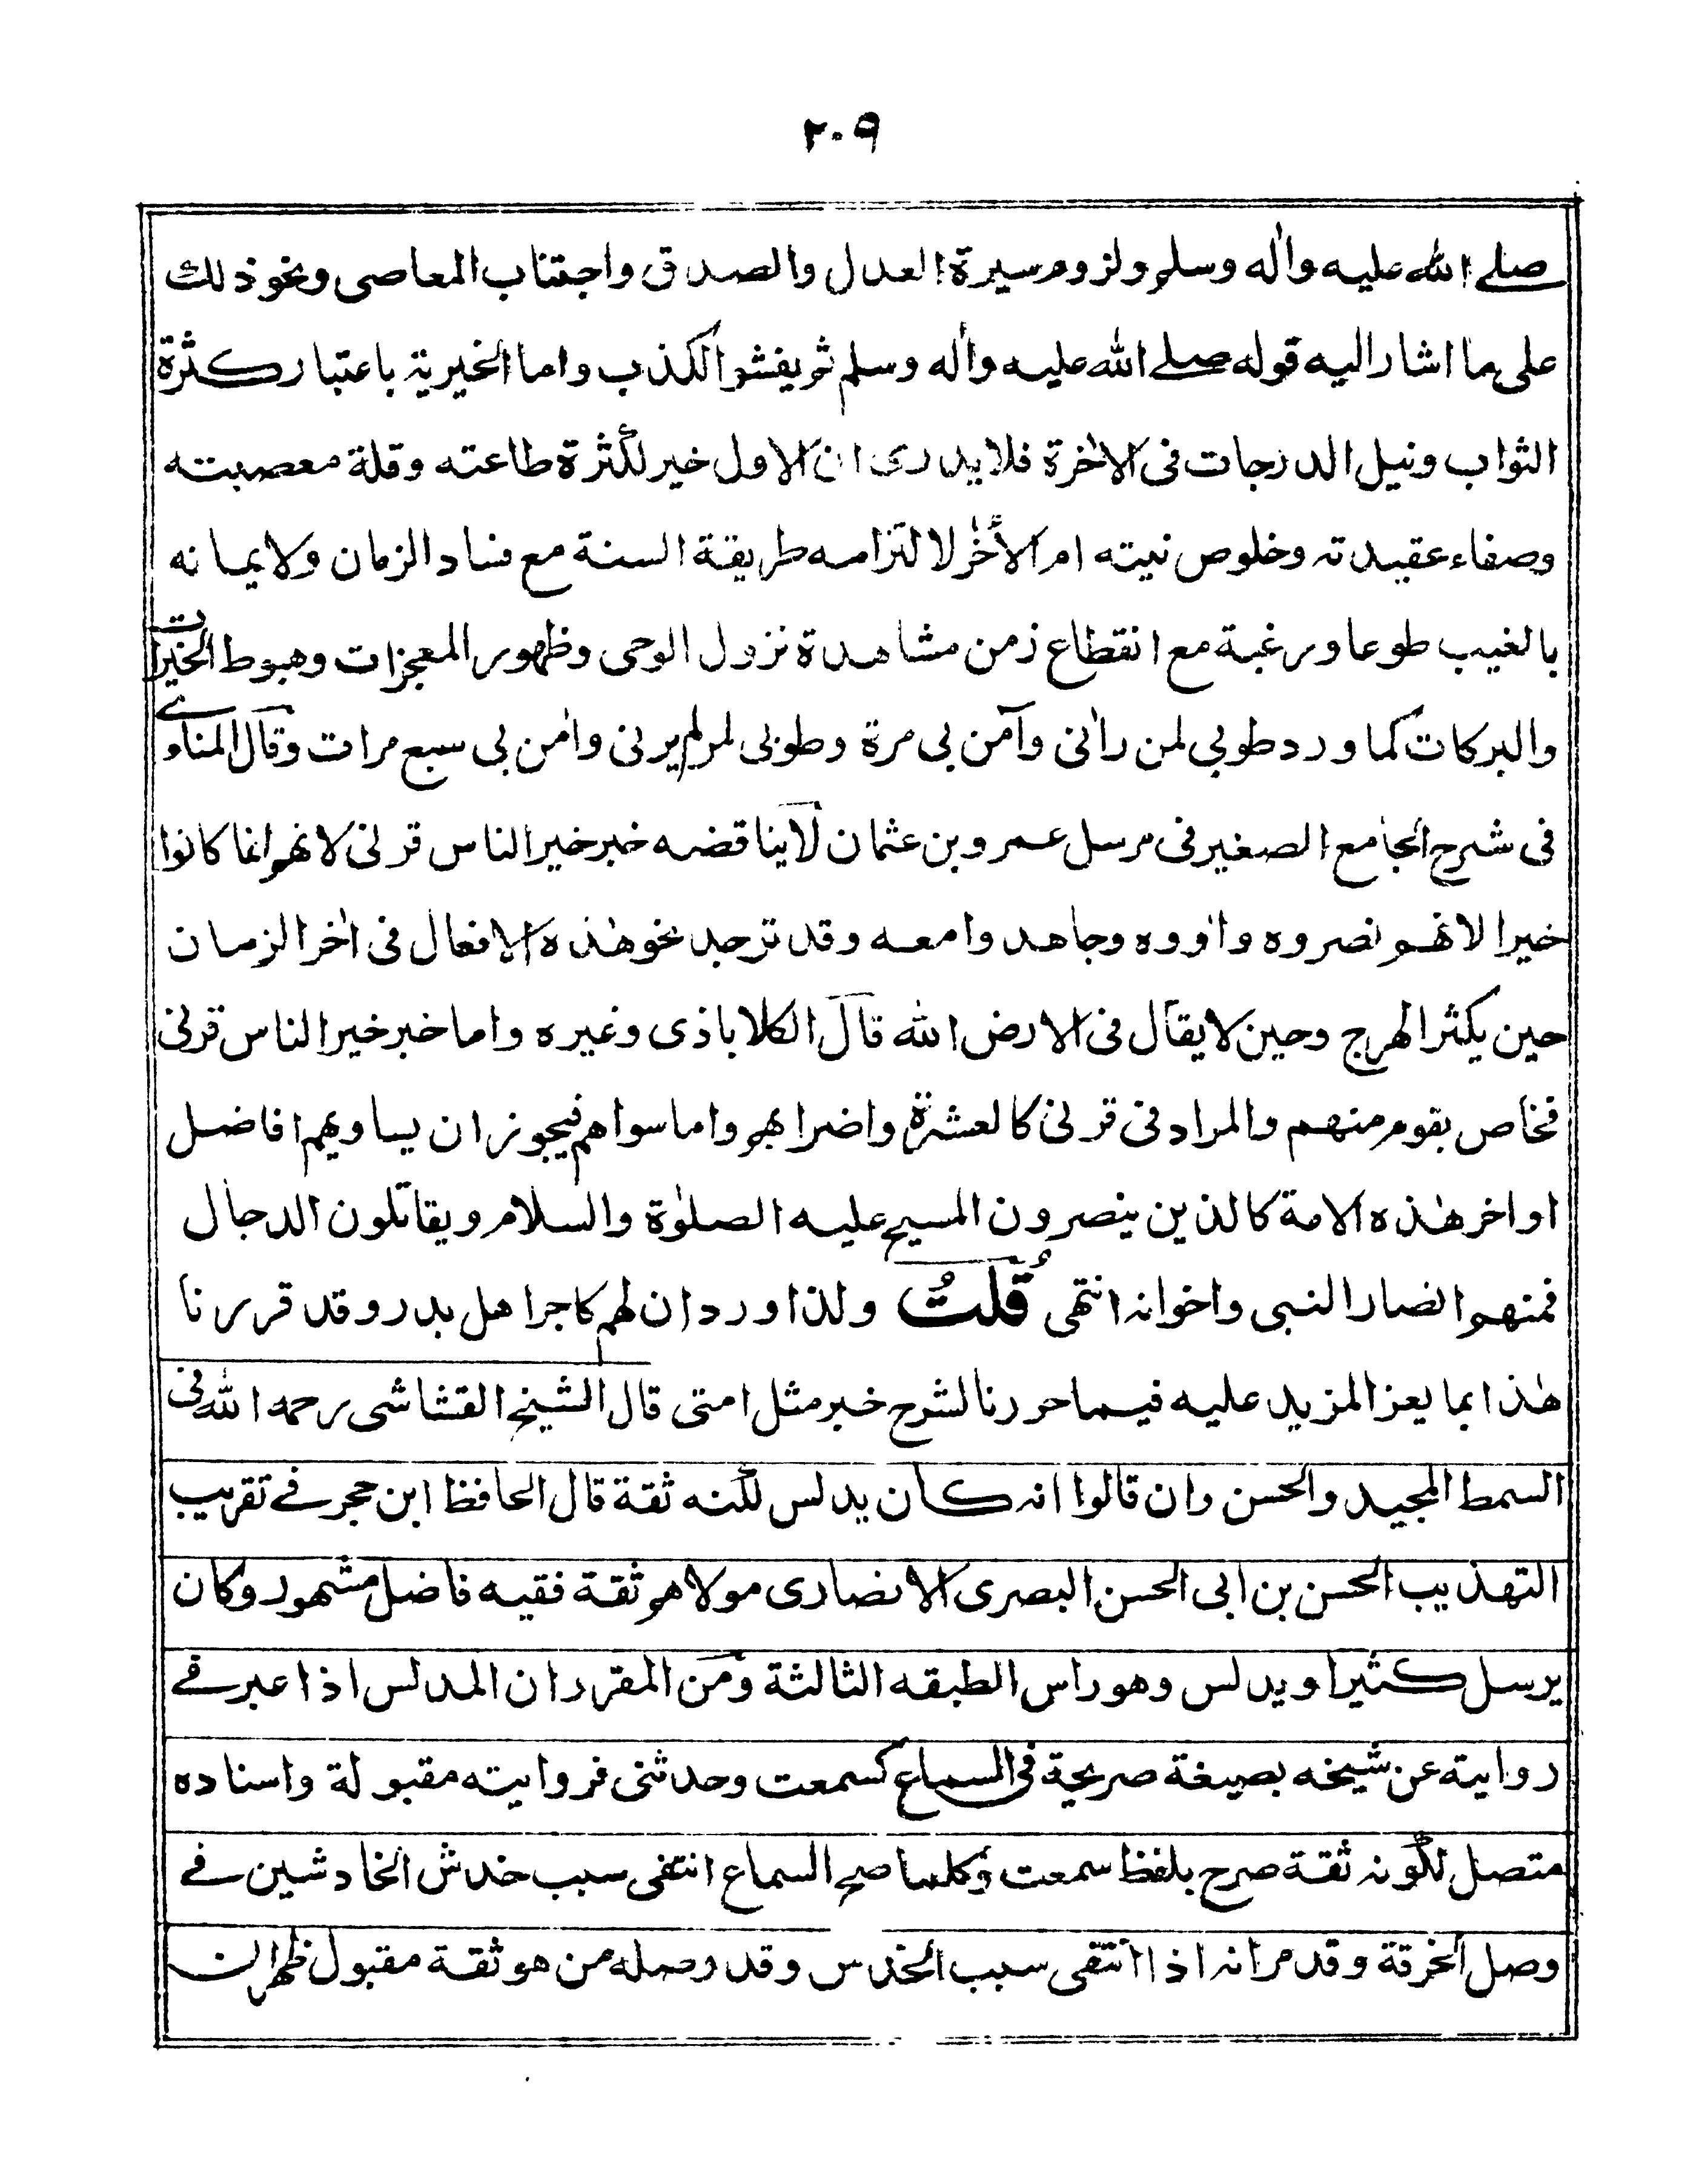 ٢٠٩
صلے الله عليه واٰله وسلم ولزوم سيرة العدل والصدق واجتناب المعاصى ونحو ذلك
على ما اشار اليه قوله صلے الله عليه واٰله وسلم ثم يفشو الكذب واما الخيرية باعتبار كثرة
الثواب ونيل الدرجات فى الاٰخرة فلا يدرى ان الاول خير لكثرة طاعته وقلة معصيته
وصفاء عقيدته وخلوص نيته ام الاٰخر لالتزامه طريقة السنة مع فساد الزمان ولايمانه
بالغيب طوعا ورغبة مع انقطاع زمن مشاهدة نزول الوحى وظهور المعجزات وهبوط الخيرات
والبركات كما ورد طوبى لمن راٰنى وآمن بى مرة وطوبى لمن لم يرنى واٰمن بى سبع مرات وقال المناوے
فى شرح الجامع الصغير فى مرسل عمرو بن عثمان لا يناقضه خبر خير الناس قرنى لانهم انما كانوا
خيرا لانهم نصروه واٰووه وجاهدوا معه وقد توجد نحو هٰذه الافعال فى اٰخر الزمان
حين يكثر الهرج وحين لا يقال فى الارض الله قال الكلاباذى وغيره واما خبر خير الناس قرنى
فخاص بقوم منهم والمراد فى قرنى كالعشرة واضرابهم واما سواهم فيجوز ان يساويهم افاضل
اواخر هٰذه الامة كالذين ينصرون المسيح عليه الصلوٰة والسلام ويقاتلون الدجال
فمنهم انصار النبى واخوانه انتهى قُلتُ ولذا ورد ان لهم كاجر اهل بدر وقد قررنا
هٰذا بما يعز المزيد عليه فيما حررنا لشرح خبر مثل امتى قال الشيخ القشاشى رحمه الله فى
السمط المجيد والحسن وان قالوا انه كان يدلس لكنه ثقة قال الحافظ ابن حجر فے تقريب
التهذيب الحسن بن ابى الحسن البصرى الانصارى مولاهم ثقة فقيه فاضل مشهور وكان
يرسل كثيرا ويدلس وهو راس الطبقه الثالثة ومن المقرر ان المدلس اذا عبر فے
رواية عن شيخه بصيغة صريحة فى السماع كسمعت وحدثنى فروايته مقبولة واسناده
متصل لكونه ثقة صرح بلفظ سمعت وكلما صح السماع انتفى سبب خدش الخادشين فے
وصل الخرقة وقد مر انه اذا انتفى سبب الخدس وقد وصله من هو ثقة مقبول ظهر ان